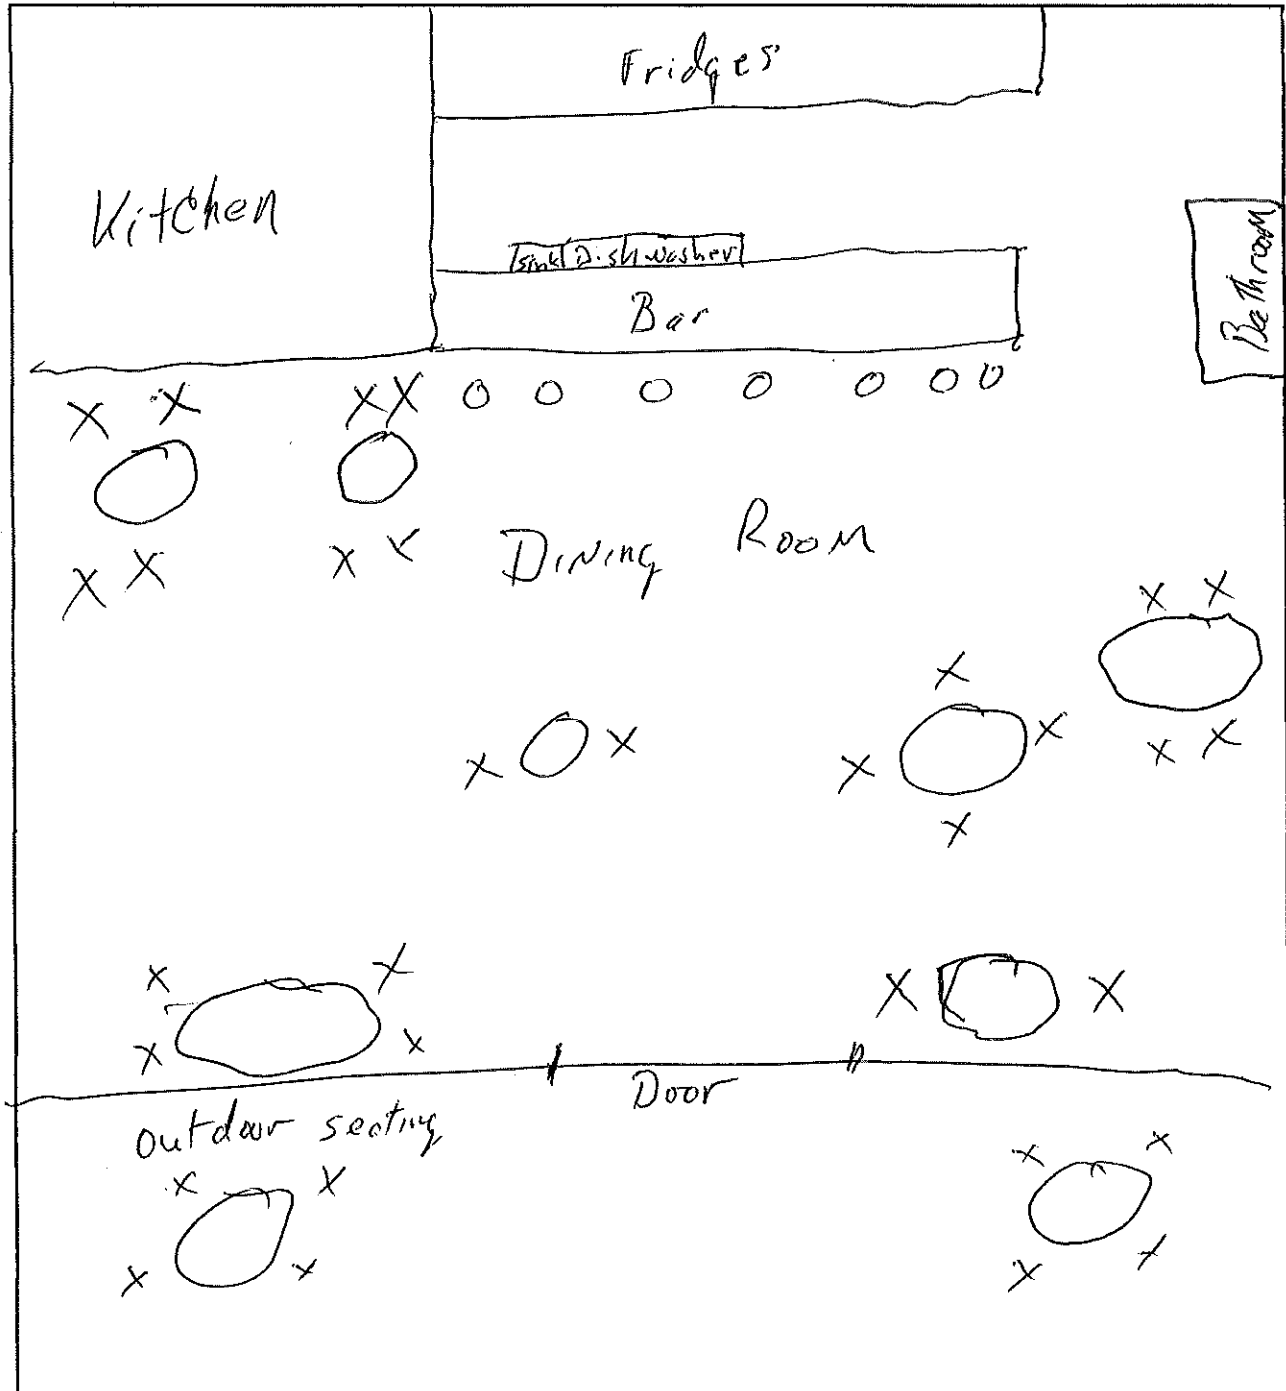 Fridges
Kitchen
Sink Dishwasher
Bar
Bathroom
Dining Room
Door
outdoor seating